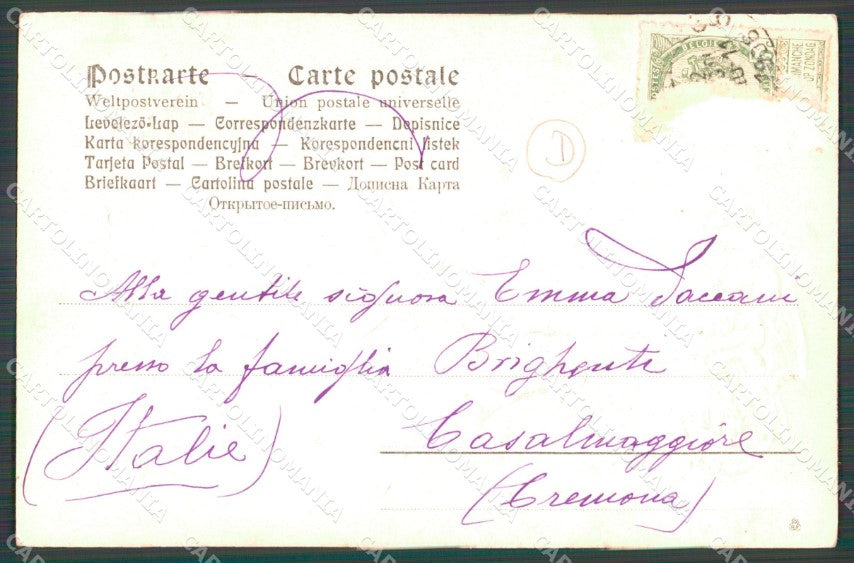 Postkarte — Carte postale
Weltpostverein — Union postale universelle
Levelező-Lap — Correspondenzkarte — Dopisnice
Karta korespondencyjna — Korespondencni listek
Tarjeta Postal — Brefkort — Brevkort — Post card
Briefkaart — Cartolina postale — Дописна Карта
Открытое-письмо.
D
BELGI
MANCHE
OP ZONDAG
Alla gentile signora Emma Saccani
presso la famiglia Brighenti
(Italie)
Casalmaggiore
(Cremona)
CARTOLINOMANIA